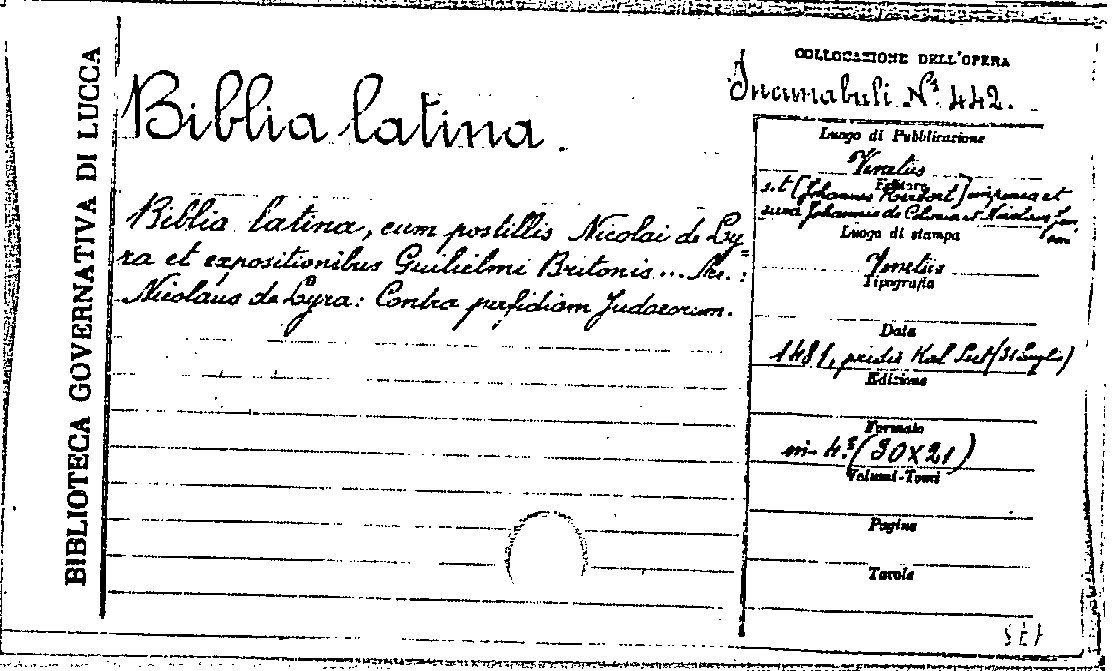 BIBLIOTECA GOVERNATIVA DI LUCCA
Biblia latina.
Biblia latina, cum postillis Nicolai de Ly-
ra et expositionibus Guilielmi Britonis ...
Nicolaus de Lyra: Contra perfidiam Judaeorum.
COLLOCAZIONE DELL'OPERA
Incunabuli N° 442.
Luogo di Pubblicazione
Venetiis
Editore
s.t [Johannes Herbort] impensa et
cura Johannis de Colonia et Nicolaus Jen
son
Luogo di stampa
Venetiis
Tipografia
Data
1481, pridie Kal (31 Luglio)
Edizione
Formato
in- 4° (30X21)
Volumi-Tomi
Pagine
Tavole